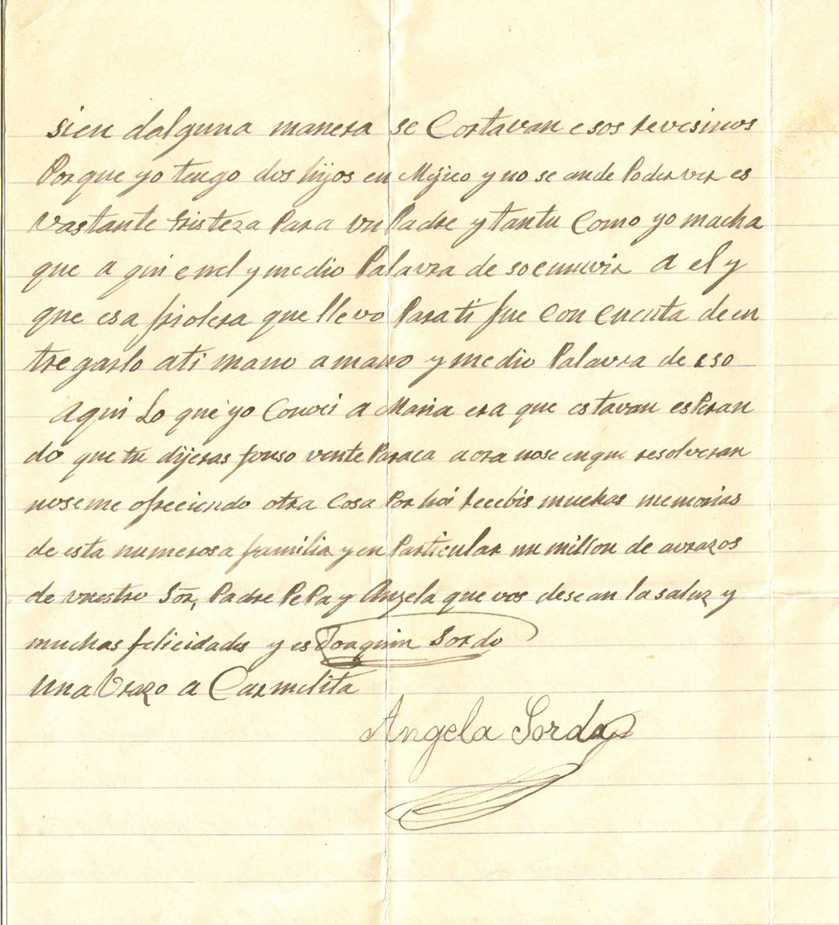 sien dalguna manera se Cortavan esos revesinos
Porque yo tengo dos hijos en Mejico y no se an de Poder ver es
vastante tristeza Para un Padre y tantu Como yo macha
que a qui enel y medio Palavra de so a el y
que esa friolera que llevo Para ti fue con cuenta de en
tregarlo a ti mano a mano y medio Palavra de eso
Aqui Lo que yo Conoci a Maria era que estavan esperan
do que tu dijeras fonso vente Paraca aora nose enque resolveran
noseme ofreciendo otra Cosa Por hoi recebis muchas memorias
de esta numerosa familia y en Particular un millon de avrazos
de vuestro Sor, Padre PePa y Angela que vos desean la saluz y
muchas felicidades y es Joaquin Sordo
una Vrazo a Carmelita
Angela Sordo